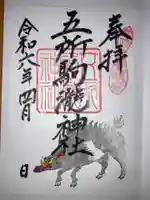 奉拝
五所駒瀧神社
令和六年四月 日